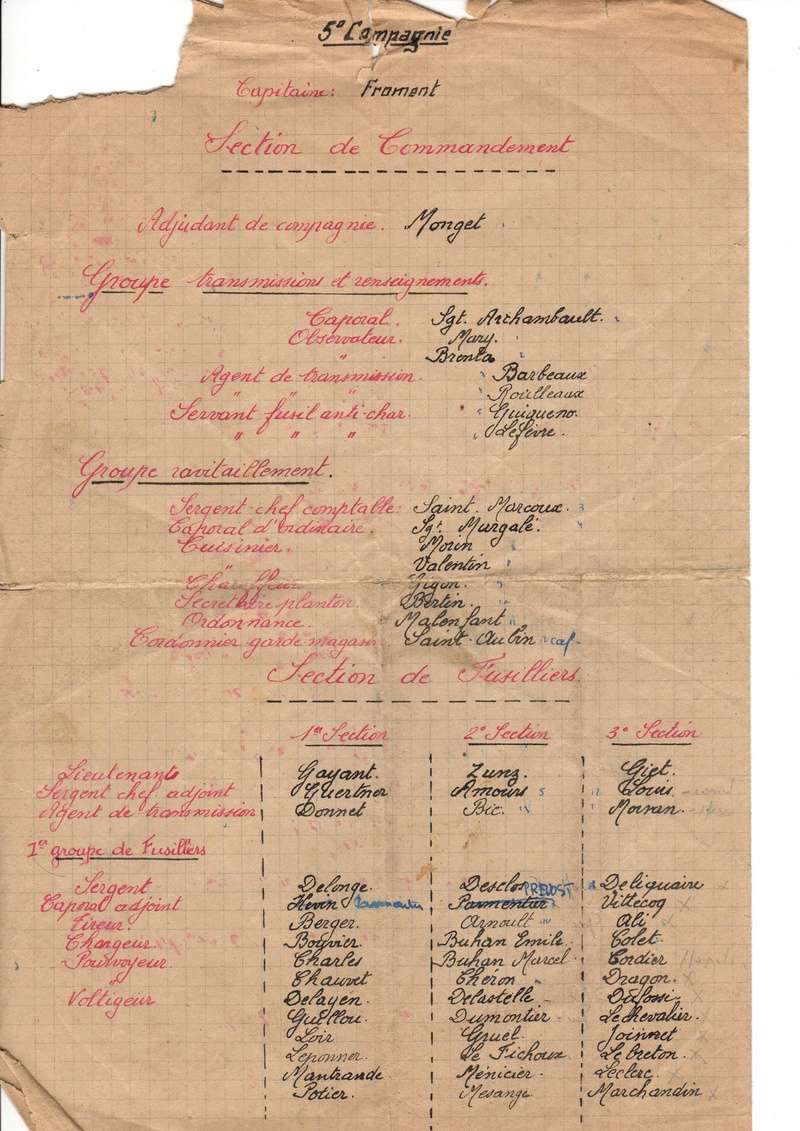 5e Compagnie
Capitaine: Froment
Section de Commandement
Adjudant de compagnie. Monget
Groupe transmissions et renseignements.
Caporal. Sgt. Archambault.
Observateur. Mary.
" Brenta
Agent de transmission. Barbeaux
" " " Rouilleaux
Servant fusil anti-char. Guigueno.
" " " Lefèvre.
Groupe ravitaillement.
Sergent-chef comptable: Saint. Marcoux.
Caporal d'ordinaire. Sgt. Murgalé.
Cuisinier. Morin
" Valentin
Chauffeur Gigon.
Secrétaire planton. Bertin.
Ordonnance. Malenfant
Cordonnier garde-magasin Saint-Aubin cal-
Section de Fusilliers.
1er Section 2e Section 3e Section
Lieutenants Gayant. Zunz. Giet.
Sergent chef adjoint Guertner Amours Louis
Agent de transmission Donnet Bic. Morvan.
1er groupe de Fusilliers
Sergent Delonge. Desclos PREVOST Deliquaire
Caporal adjoint Hevin Parmentier Vittecoq
Tireur. Berger. Arnoult Ali
Chargeur. Bouvier. Buhan Emile Colet.
Pourvoyeur. Charles Buhan Marcel Cordier
Chauvet Chéron Dragon.
Voltigeur Delayen. Delastelle Dufossi
Guillou. Dumontier Lechevalier.
Loir Gruel. Joinnet
Leponner. Le Fichoux Lebreton.
Mantrande Ménicier. Leclerc
Potier. Mesange Marchandin